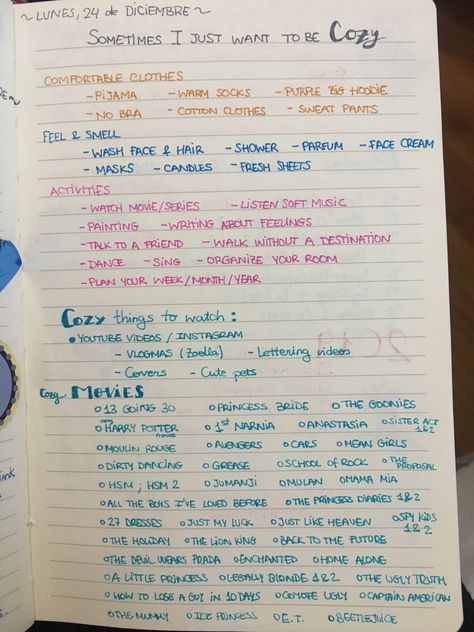 ~ LUNES, 24 de DICIEMBRE ~
SOMETIMES I JUST WANT TO BE Cozy
COMFORTABLE CLOTHES
- PIJAMA - WARM SOCKS - PURPLE BIG HOODIE
- NO BRA - COTTON CLOTHES - SWEAT PANTS
FEEL & SMELL
- WASH FACE & HAIR - SHOWER - PARFUM - FACE CREAM
- MASKS - CANDLES - FRESH SHEETS
ACTIVITIES
- WATCH MOVIE/SERIES - LISTEN SOFT MUSIC
- PAINTING - WRITING ABOUT FEELINGS
- TALK TO A FRIEND - WALK WITHOUT A DESTINATION
- DANCE - SING - ORGANIZE YOUR ROOM
- PLAN YOUR WEEK/MONTH/YEAR
Cozy things to watch:
• YOUTUBE VIDEOS / INSTAGRAM
- VLOGMAS (Zoella) - Lettering videos
- Covers - Cute pets
Cozy MOVIES
o 13 GOING 30 o PRINCESS BRIDE o THE GOONIES
o HARRY POTTER movie o 1st NARNIA o ANASTASIA o SISTER ACT 1&2
o MOULIN ROUGE o AVENGERS o CARS o MEAN GIRLS
o DIRTY DANCING o GREASE o SCHOOL OF ROCK o THE PROPOSAL
o HSM ; HSM 2 o JUMANJI o MULAN o MAMA MIA
o ALL THE BOYS I'VE LOVED BEFORE o THE PRINCESS DIARIES 1&2
o 27 DRESSES o JUST MY LUCK o JUST LIKE HEAVEN o SPY KIDS 1&2
o THE HOLIDAY o THE LION KING o BACK TO THE FUTURE
o THE DEVIL WEARS PRADA o ENCHANTED o HOME ALONE
o A LITTLE PRINCESS o LEGALLY BLONDE 1&2 o THE UGLY TRUTH
o HOW TO LOSE A GUY IN 10 DAYS o COYOTE UGLY o CAPTAIN AMERICAN
o THE MUMMY o ICE PRINCESS o E.T. o BEETLEJUICE